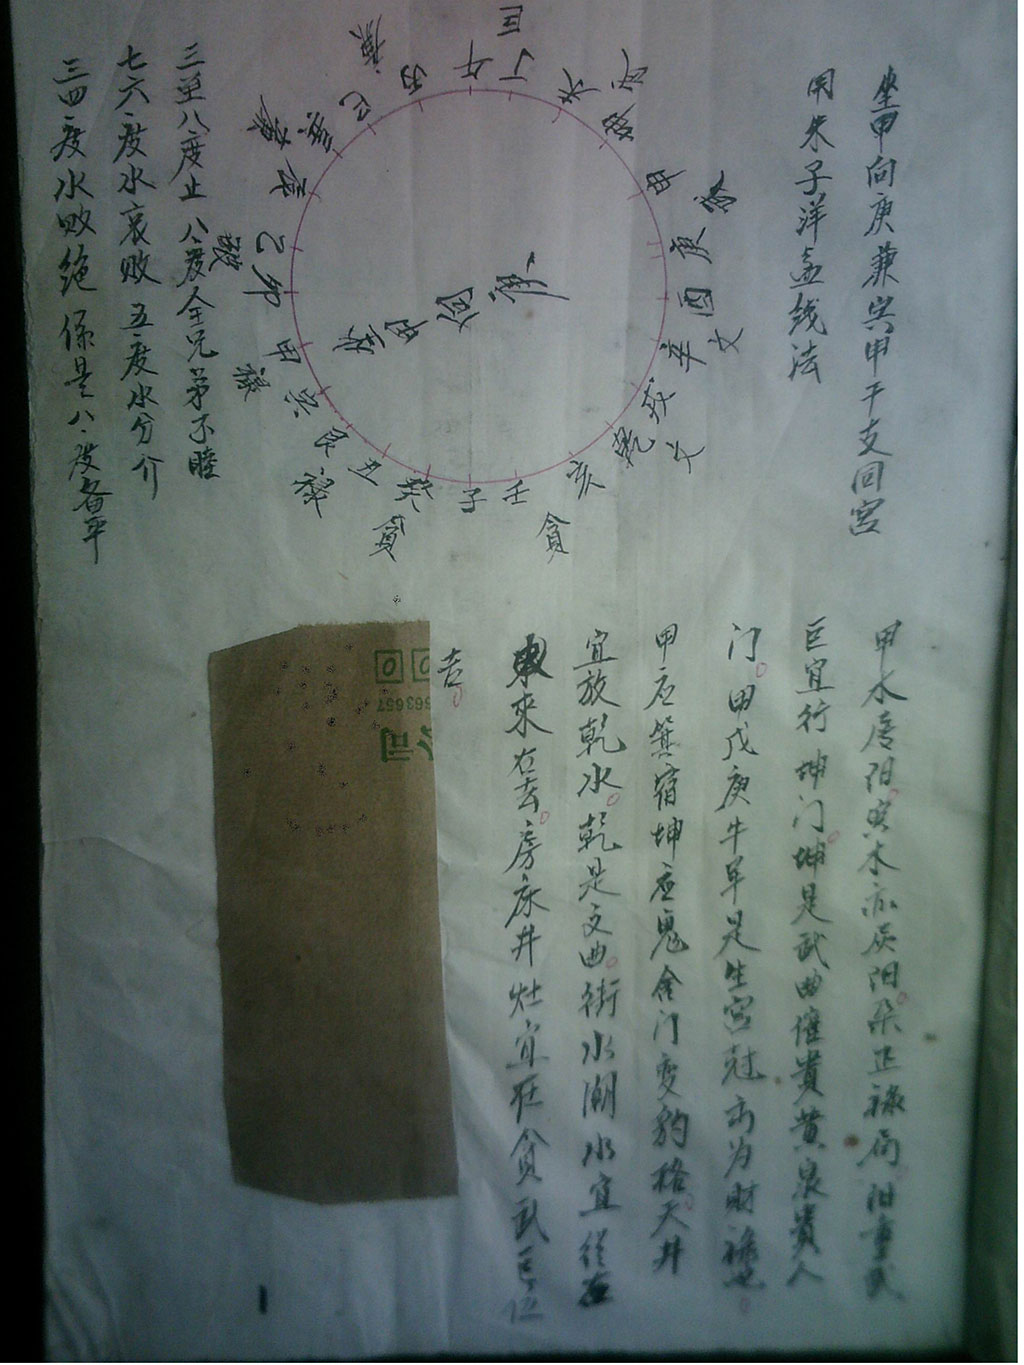 坐甲向庚兼寅甲干支同宫
用朱子洋盃线法
巨
丁
午
丙
廉
巳
巽
廉
辰
乙
卯
甲
禄
寅
艮
禄
丑
癸
贪
子
壬
贪
亥
乾
文
戌
辛
文
酉
庚
申
坤
武
未
甲
向
庚
三至八度止 八度全兄弟不睦
七六度水哀败 五度水分介
三四度水败绝 係是八度各平
甲水居阳寅木亦灰阳朵正禄局阳重武
巨宜行坤门坤是武曲催貴黄泉貴人
门甲戊庚牛羊是生宫冠为财禄
甲应箕宿坤应鬼舍门变豹格天井
宜放乾水乾是文曲街水潮水宜從
來右去房床井灶宜在贪武巨位
吉
00
公司